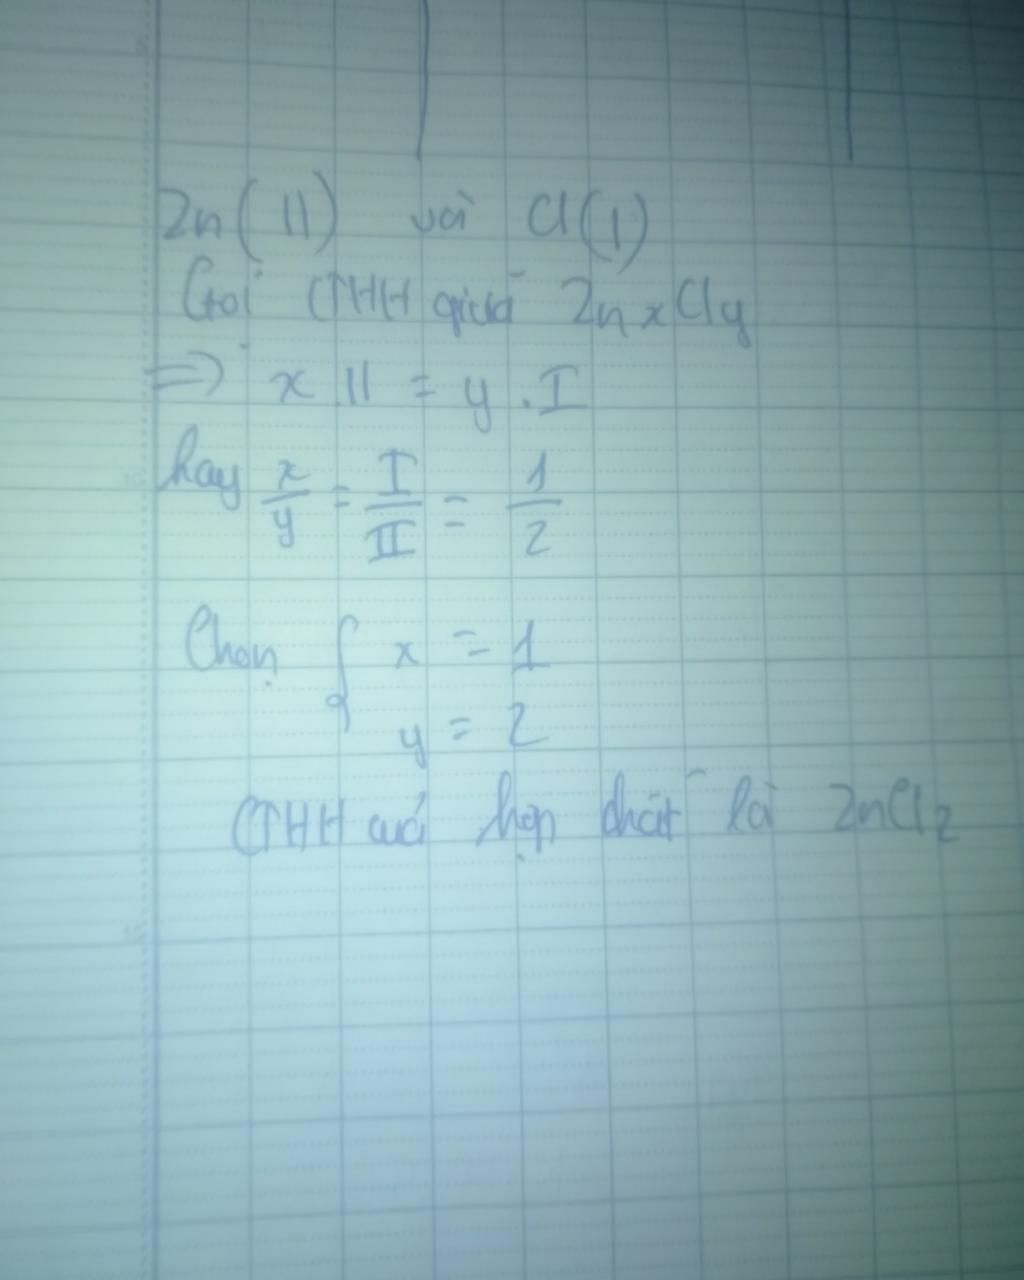 Zn(II) và Cl(I)
Gọi CTHH giữa ZnxCly
=> x.II = y.I
hay x/y = I/II = 1/2
Chọn { x = 1
y = 2
CTHH của hợp chất là ZnCl2